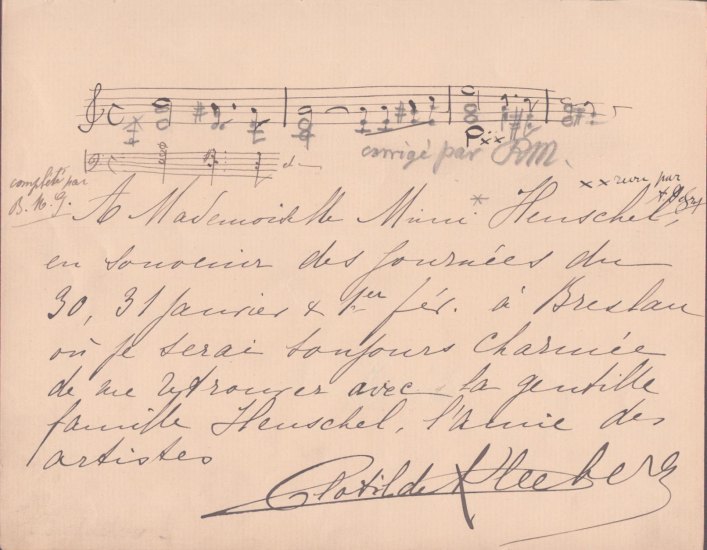 corrigé par RM.
complété par
B. M. G.
x x revu par
A Mademoiselle Mimi * Henschel,
en souvenir des journées du
30, 31 Janvier & 1er fév. à Breslau
où je serai toujours charmée
de me retrouver avec la gentille
famille Henschel, l'amie des
artistes
Clotilde Kleeberg